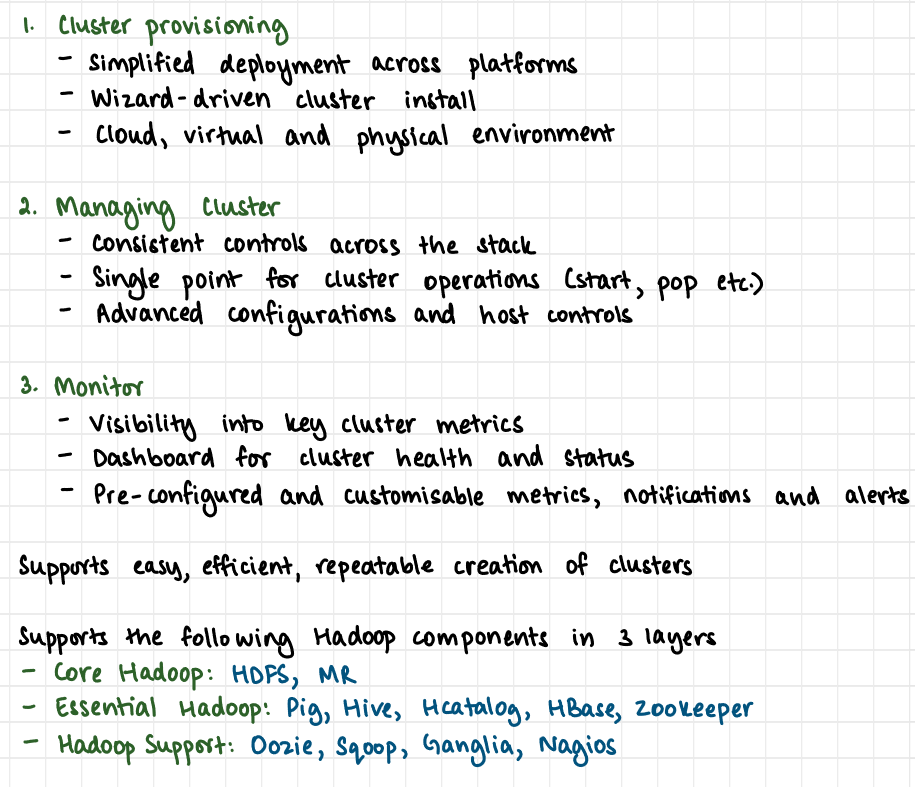 1. Cluster provisioning
- Simplified deployment across platforms
- Wizard-driven cluster install
- Cloud, virtual and physical environment
2. Managing Cluster
- Consistent controls across the stack
- Single point for cluster operations (start, pop etc.)
- Advanced configurations and host controls
3. Monitor
- Visibility into key cluster metrics
- Dashboard for cluster health and status
- Pre-configured and customisable metrics, notifications and alerts
Supports easy, efficient, repeatable creation of clusters
Supports the following Hadoop components in 3 layers
- Core Hadoop: HDFS, MR
- Essential Hadoop: Pig, Hive, Hcatalog, HBase, Zookeeper
- Hadoop Support: Oozie, Sqoop, Ganglia, Nagios